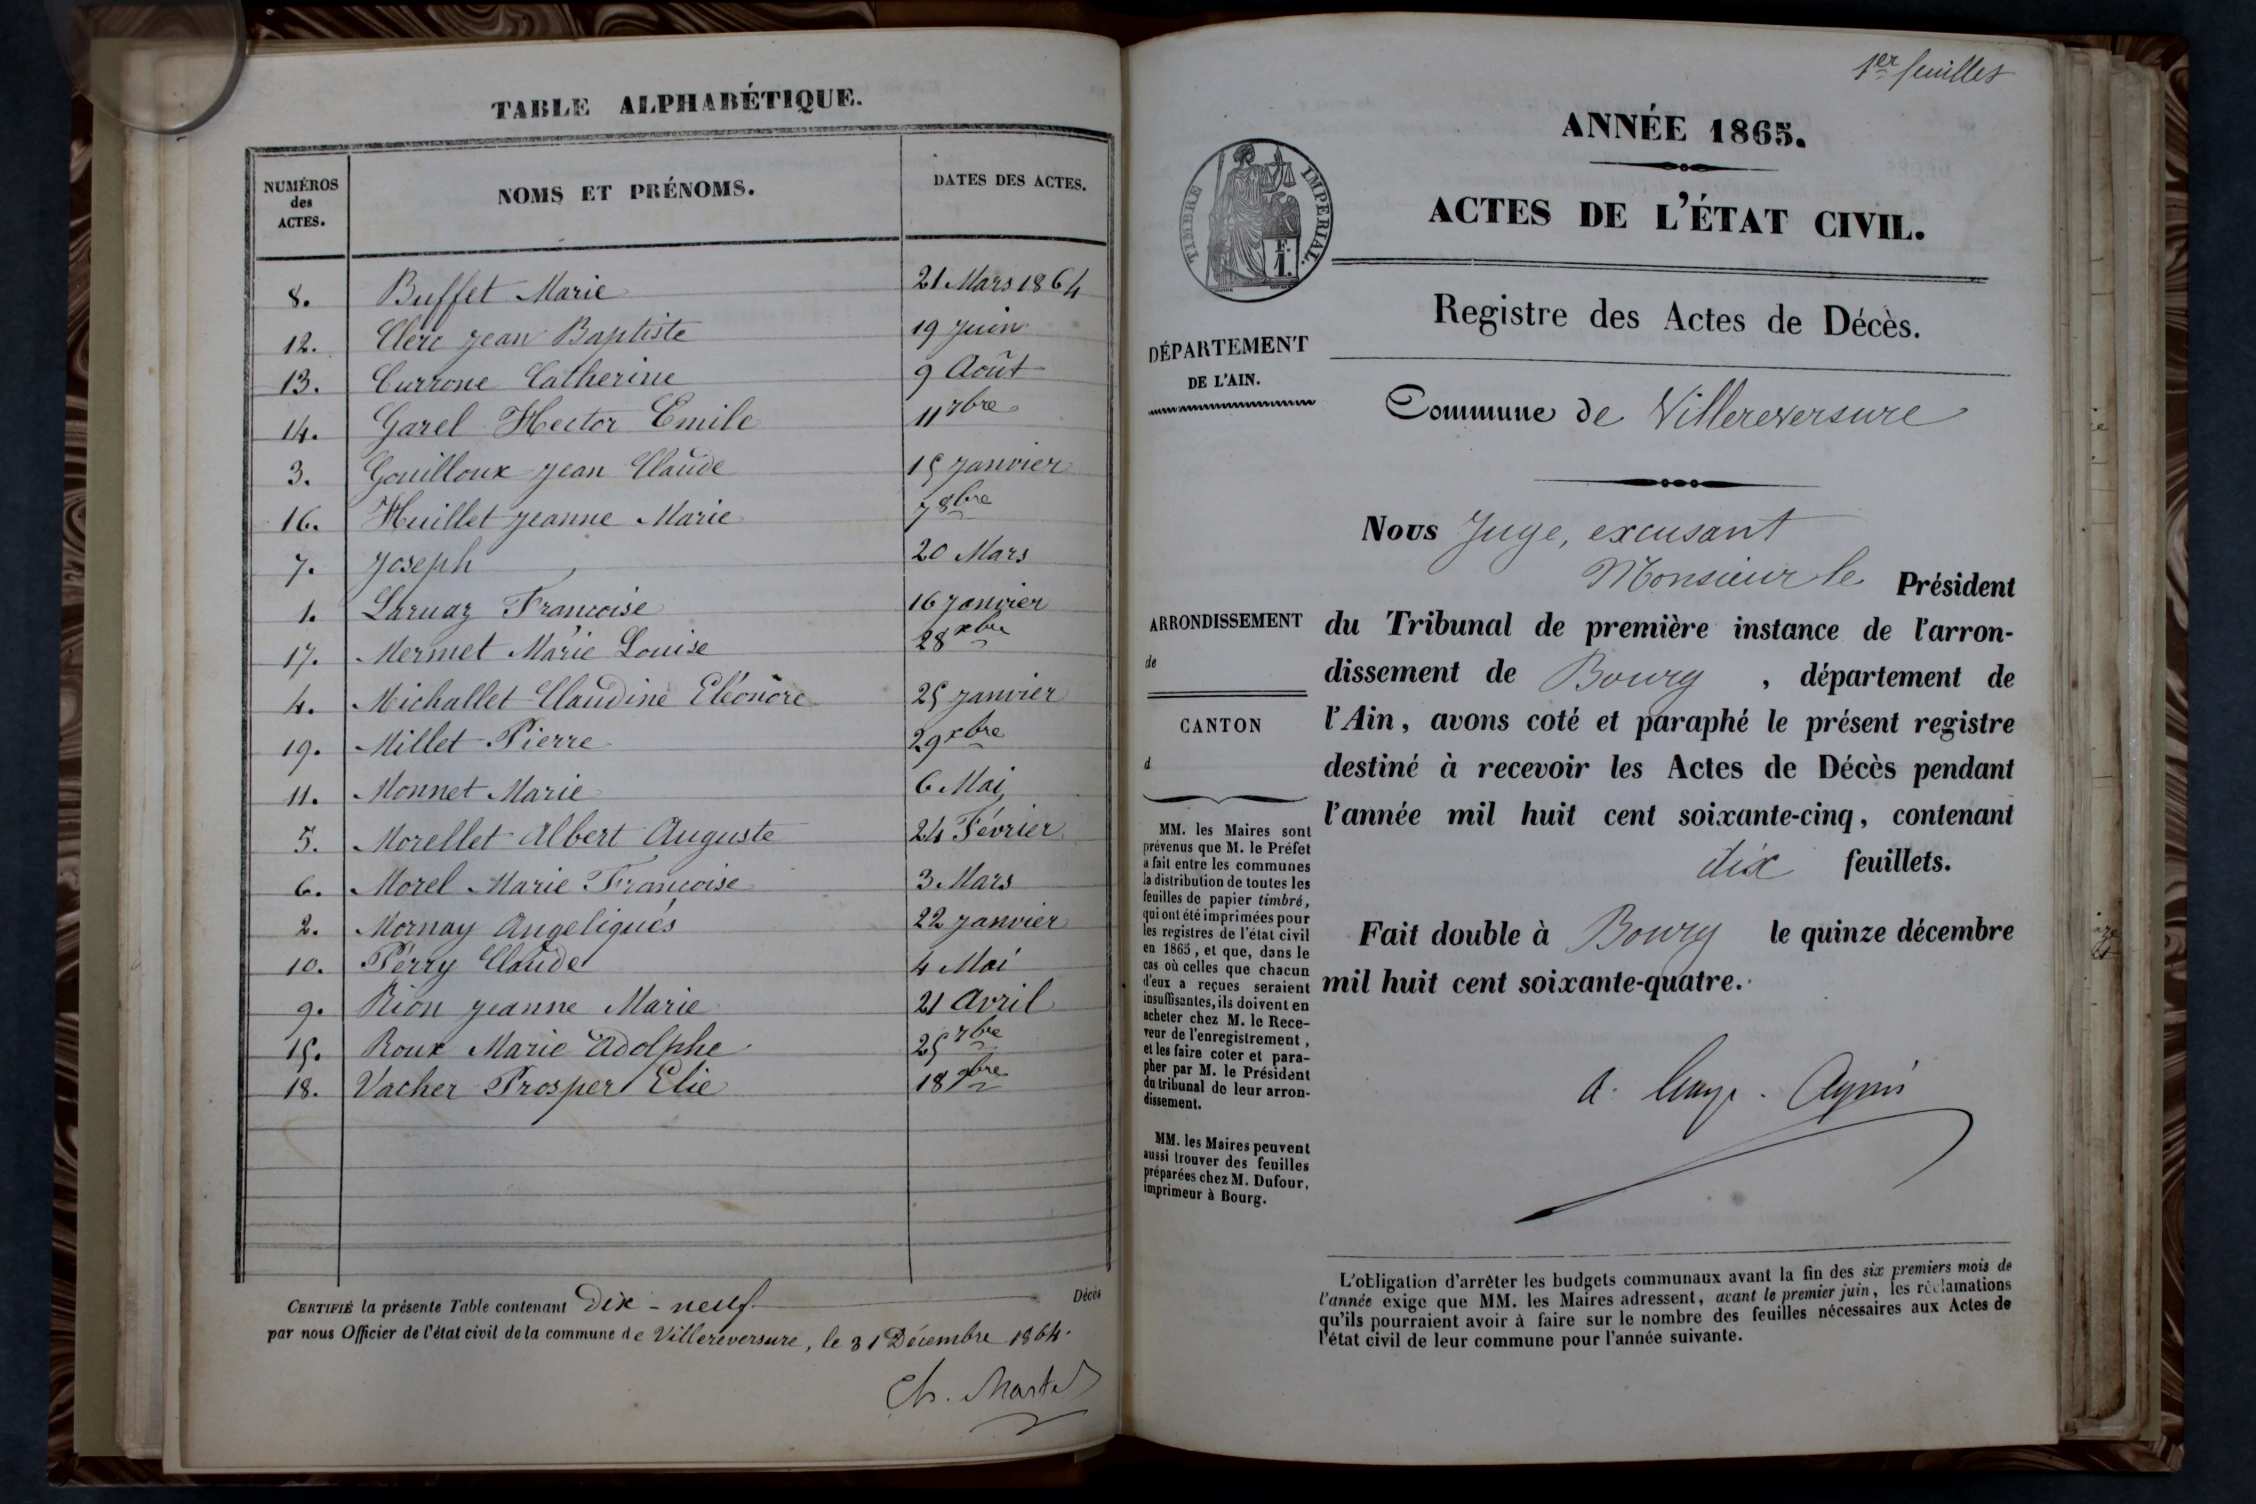 TABLE ALPHABÉTIQUE.
NUMÉROS des ACTES. NOMS ET PRÉNOMS. DATES DES ACTES.
8. Buffet Marie 21 Mars 1864
12. Clerc Jean Baptiste 19 Juin
13. Currone Catherine 9 Août
14. Garel Hector Emile 11 7bre
3. Gouilloux Jean Claude 15 Janvier
16. Huillet Jeanne Marie 7 8bre
7. Joseph 20 Mars
1. Laruaz Françoise 16 Janvier
17. Mermet Marie Louise 28 xbre
4. Michallet Claudine Eléonore 25 Janvier
19. Millet Pierre 29 xbre
11. Monnet Marie 6 Mai
5. Morellet Albert Auguste 24 Février
6. Morel Marie Françoise 3 Mars
2. Mornay Angeliques 22 Janvier
10. Perry Claude 4 Mai
9. Rion Jeanne Marie 21 Avril
15. Roux Marie Adolphe 25 7bre
18. Vacher Prosper Elie 18 9bre
CERTIFIÉ la présente Table contenant Dix-neuf Décès
par nous Officier de l'état civil de la commune de Villereversure, le 31 Décembre 1864.
Ch. Martel
1er feuillet
ANNÉE 1865.
ACTES DE L'ÉTAT CIVIL.
TIMBRE IMPERIAL.
F. 1.
Registre des Actes de Décès.
DÉPARTEMENT
DE L'AIN.
Commune de Villereversure
Nous Juge, excusant
Monsieur le Président
du Tribunal de première instance de l'arron-
dissement de Bourg, département de
l'Ain, avons coté et paraphé le présent registre
destiné à recevoir les Actes de Décès pendant
l'année mil huit cent soixante-cinq, contenant
dix feuillets.
Fait double à Bourg le quinze décembre
mil huit cent soixante-quatre.
ARRONDISSEMENT
de
CANTON
d
MM. les Maires sont
prévenus que M. le Préfet
a fait entre les communes
la distribution de toutes les
feuilles de papier timbré,
qui ont été imprimées pour
les registres de l'état civil
en 1865, et que, dans le
cas où celles que chacun
d'eux a reçues seraient
insuffisantes, ils doivent en
acheter chez M. le Rece-
veur de l'enregistrement,
et les faire coter et para-
pher par M. le Président
du tribunal de leur arron-
dissement.
MM. les Maires peuvent
aussi trouver des feuilles
préparées chez M. Dufour,
imprimeur à Bourg.
L'obligation d'arrêter les budgets communaux avant la fin des six premiers mois de
l'année exige que MM. les Maires adressent, avant le premier juin, les réclamations
qu'ils pourraient avoir à faire sur le nombre des feuilles nécessaires aux Actes de
l'état civil de leur commune pour l'année suivante.